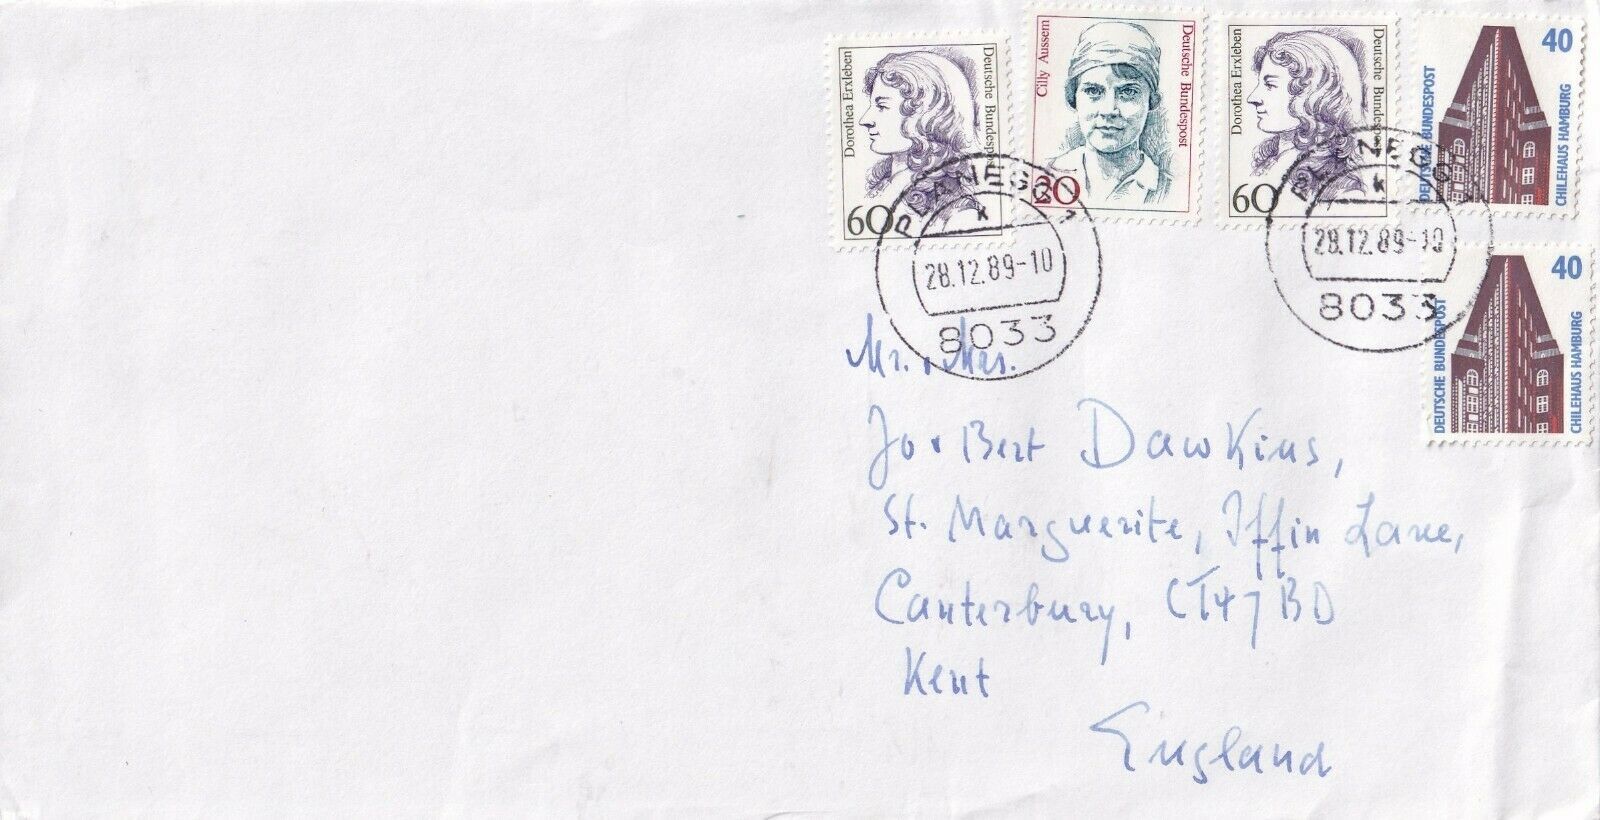 Dorothea Erxleben
Deutsche Bundespost
60
Cilly Aussem
Deutsche Bundespost
20
Dorothea Erxleben
Deutsche Bundespost
60
DEUTSCHE BUNDESPOST
40
CHILEHAUS HAMBURG
DEUTSCHE BUNDESPOST
40
CHILEHAUS HAMBURG
PLANEGG 1
k
28.12.89-10
8033
PLANEGG
k
28.12.89-10
8033
Mr. + Mrs.
Jo + Bert Dawkins,
St. Marguerite, Iffin Lane,
Canterbury, CT47BD
Kent
England